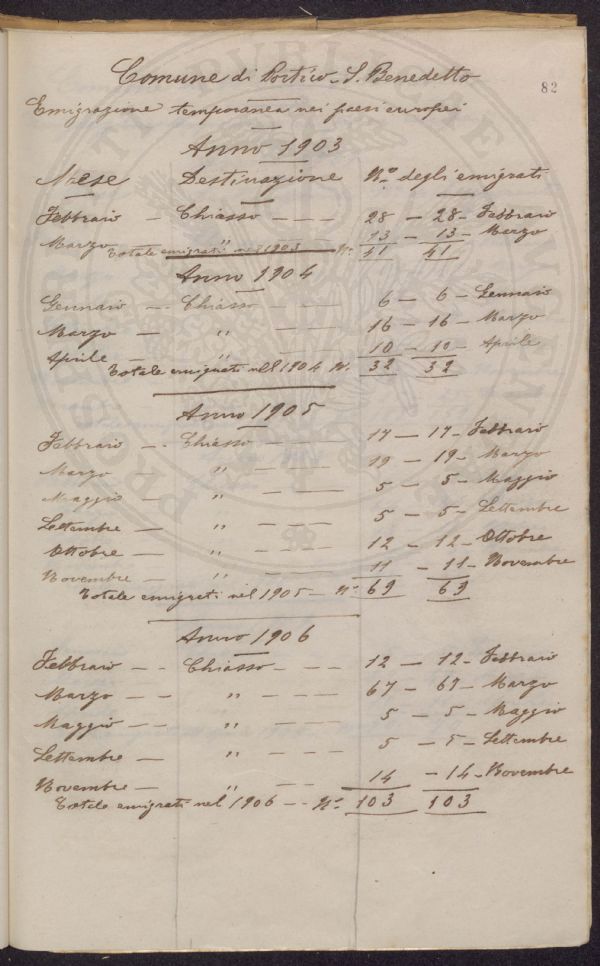 82
Comune di Portico - S. Benedetto
Emigrazione temporanea nei paesi europei
Anno 1903
Mese Destinazione No degli emigrati
Febbraio - Chiasso - - - 28 - 28 - Febbraio
Marzo " 13 - 13 - Marzo
Totale emigrati nel 1903 No 41 41
Anno 1904
Gennaio - - Chiasso - - - 6 - 6 - Gennaio
Marzo - " - - 16 - 16 - Marzo
Aprile - " 10 - 10 - Aprile
Totale emigrati nel 1904 N. 32 32
Anno 1905
Febbraio - - Chiasso - - - 17 - 17 - Febbraio
Marzo " - - - 19 - 19 - Marzo
Maggio - " - - - 5 - 5 - Maggio
Settembre - " - - - 5 - 5 - Settembre
Ottobre - " - - - - 12 - 12 - Ottobre
Novembre - " - - - 11 - 11 - Novembre
Totale emigrati nel 1905 - No 69 69
Anno 1906
Febbraio - - Chiasso - - - 12 - 12 - Febbraio
Marzo - - " - - - 67 - 67 - Marzo
Maggio - - " - - 5 - 5 - Maggio
Settembre - " - - 5 - 5 - Settembre
Novembre - " - - 14 - 14 - Novembre
Totale emigrati nel 1906 - - No 103 103